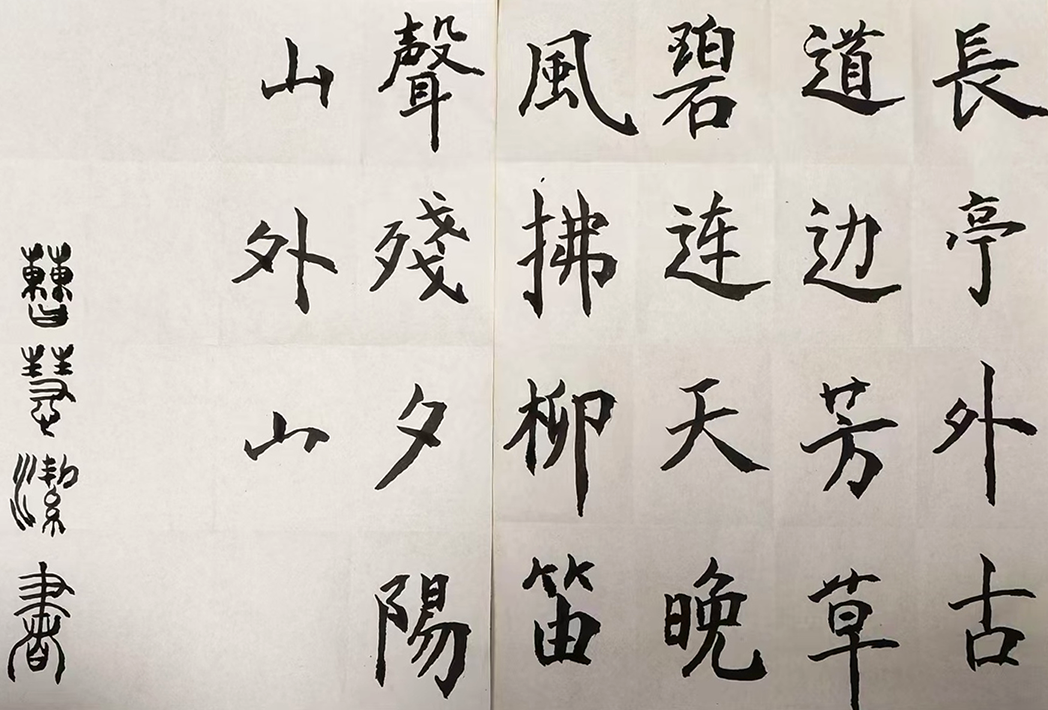 長亭外古
道边芳草
碧连天晚
風拂柳笛
聲殘夕陽
山外山
曹慧潔書